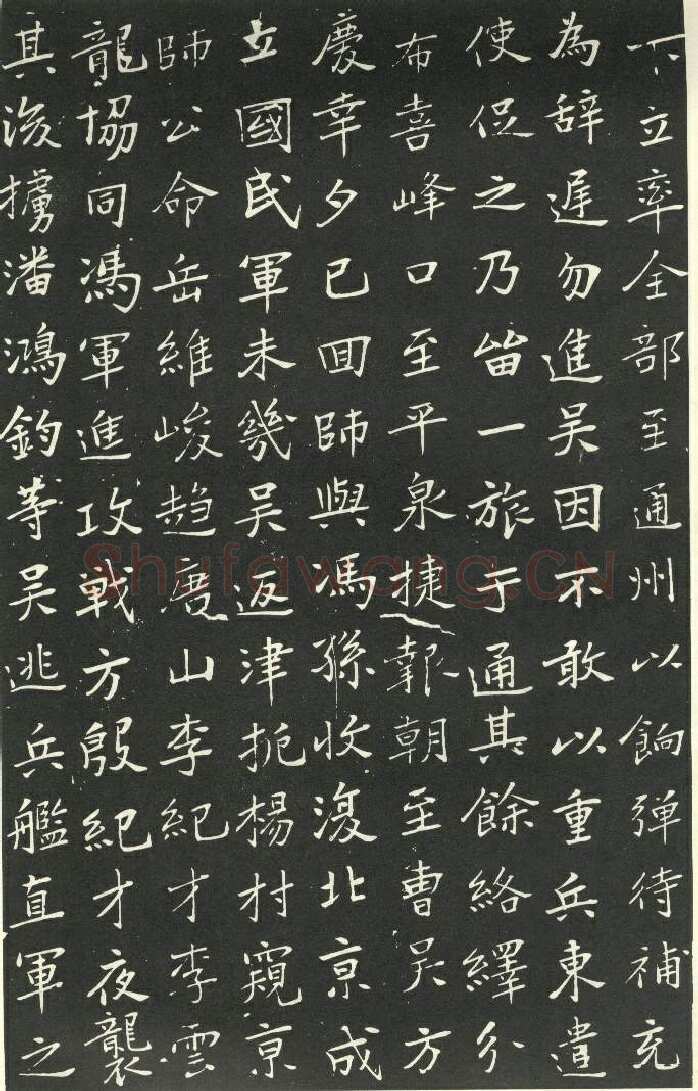 下立率全部至通州以餉弹待補充
為辞遅勿進吴因不敢以重兵東遣
使促之乃畄一旅于通其餘絡繹分
布喜峰口至平泉捷報朝至曹吴方
慶幸夕已囬師與馮孫收復北京成
立國民軍未幾吴返津扼楊村窺京
師公命岳維峻趋唐山李紀才李雲
龍协同馮軍進攻戰方殷紀才夜襲
其後擄潘鴻鈞等吴逃兵艦直軍之
Shufawang.CN